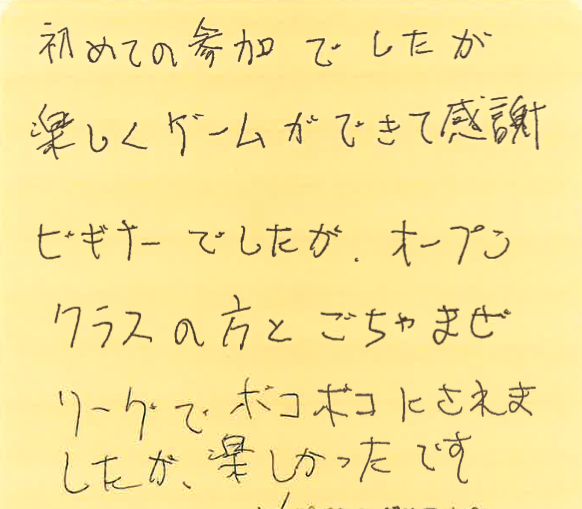 初めての参加でしたが
楽しくゲームができて感謝
ビギナーでしたが、オープン
クラスの方とごちゃまぜ
リーグでボコボコにされま
したが、楽しかったです